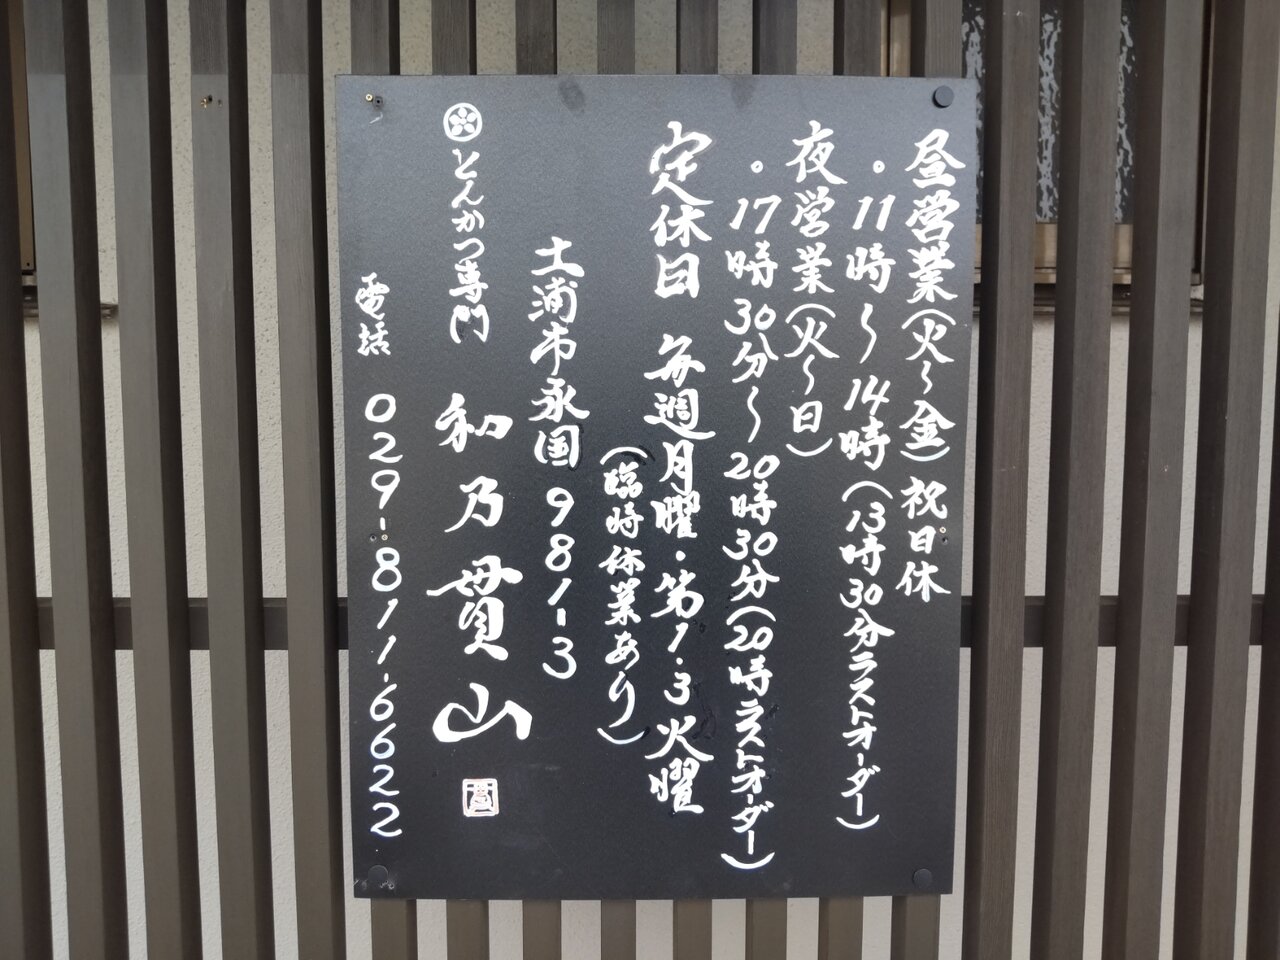 昼営業(火〜金)祝日休
。11時〜14時(13時30分ラストオーダー)
夜営業(火〜日)
。17時30分〜20時30分(20時ラストオーダー)
定休日 毎週月曜・第1・3火曜
(臨時休業あり)
土浦市永国981-3
とんかつ専門 和乃貫山
電話 029-811-6622